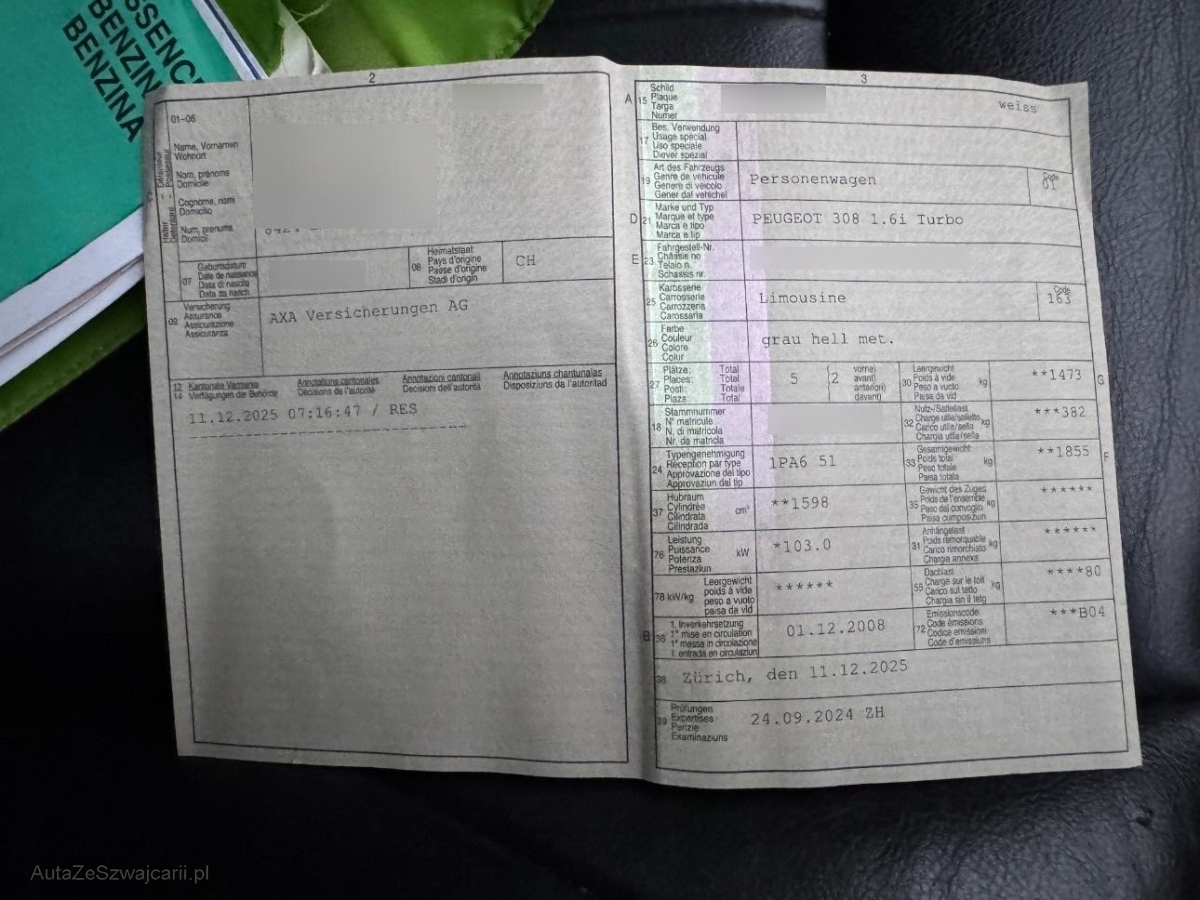 SSENCE
BENZIN
BENZINA
2
01-06
Name, Vornamen
Wohnort
Nom, prénoms
Domicile
Cognome, nomi
Domicilio
Num, prenums
Domicil
07
Geburtsdatum
Date de naissance
Data di nascita
Data da nasch.
08
Heimatstaat
Pays d'origine
Paese d'origine
Stadi d'origin
CH
09
Versicherung
Assurance
Assicurazione
Assicuranza
AXA Versicherungen AG
13
14
Kantonale Vermerke
Verfügungen der Behörde
Annotations cantonales
Décisions de l'autorité
Annotazioni cantonali
Decisioni dell'autorità
Annotaziuns chantunalas
Disposiziuns da l'autoritad
11.12.2025 07:16:47 / RES
3
A
15
Schild
Plaque
Targa
Numer
weiss
17
Bes. Verwendung
Usage spécial
Uso speciale
Diever spezial
19
Art des Fahrzeugs
Genre de véhicule
Genere di veicolo
Gener dal vehichel
Personenwagen
Code
01
D
21
Marke und Typ
Marque et type
Marca e tipo
Marca e tip
PEUGEOT 308 1.6i Turbo
E
23
Fahrgestell-Nr.
Châssis no
Telaio n.
Schassis nr.
25
Karosserie
Carrosserie
Carrozzeria
Carossaria
Limousine
Code
163
26
Farbe
Couleur
Colore
Colur
grau hell met.
27
Plätze: Total
Places: Total
Posti: Totale
Plazs: Total
5
(2
vorne)
avant)
anteriori)
davant)
30
Leergewicht
Poids à vide
Peso a vuoto
Paisa da vid
kg
**1473
G
18
Stammnummer
N° matricule
N. di matricola
Nr. da matricla
32
Nutz-/Sattellast
Charge utile/sellette
Carico utile/sella
Chargia utila/sella
kg
***382
24
Typengenehmigung
Réception par type
Approvazione del tipo
Approvaziun dal tip
1PA6 51
33
Gesamtgewicht
Poids total
Peso totale
Paisa totala
kg
**1855
F
37
Hubraum
Cylindrée
Cilindrata
Cilindrada
cm³
**1598
35
Gewicht des Zuges
Poids de l'ensemble
Peso del convoglio
Paisa cumposiziun
kg
******
76
Leistung
Puissance
Potenza
Prestaziun
kW
*103.0
31
Anhängelast
Poids remorquable
Carico rimorchiato
Chargia annexa
kg
******
78 kW/kg
Leergewicht
poids à vide
peso a vuoto
paisa da vid
******
55
Dachlast
Charge sur le toit
Carico sul tetto
Chargia sin il tetg
kg
****80
B
36
1. Inverkehrsetzung
1re mise en circulation
1a messa in circolazione
1. entrada en circulaziun
01.12.2008
72
Emissionscode
Code émissions
Codice emissioni
Code d'emissiuns
***B04
38
Zürich, den 11.12.2025
39
Prüfungen
Expertises
Perizie
Examinaziuns
24.09.2024 ZH
AutaZeSzwajcarii.pl